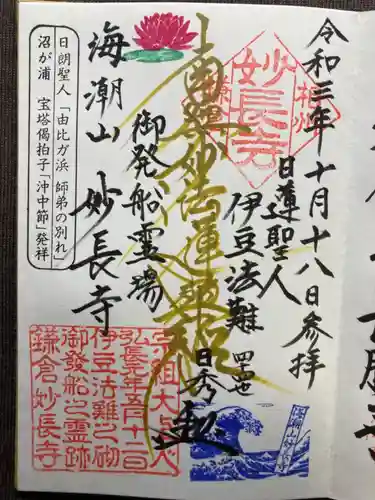 令和三年十月十八日参拝
相州
妙長寺
鎌倉
日蓮聖人
伊豆法難
四十四世
日秀
南無妙法蓮華経
御発船霊場
海潮山 妙長寺
日朗聖人「由比ガ浜 師弟の別れ」
沼が浦 宝塔偈拍子「沖中節」発祥
宗祖大上人
弘長元年五月十二日
伊豆法難之砌
御發船之霊跡
鎌倉妙長寺